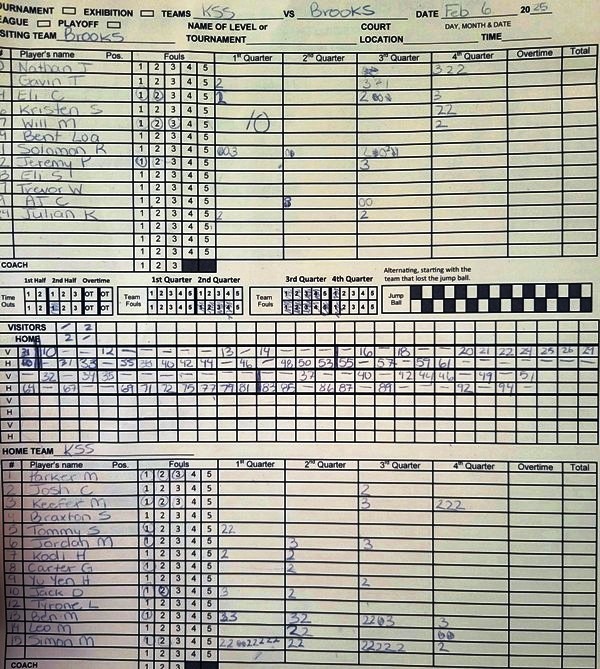 TOURNAMENT EXHIBITION TEAMS KSS VS Brooks DATE Feb 6 20 25
LEAGUE PLAYOFF NAME OF LEVEL or TOURNAMENT COURT LOCATION DAY, MONTH & DATE TIME
VISITING TEAM Brooks
# Player's name Pos. Fouls 1st Quarter 2nd Quarter 3rd Quarter 4th Quarter Overtime Total
Nathan T 1 2 3 4 5 3 2 2
Gavin T 1 2 3 4 5 2
Eli C 1 2 3 4 5 3
Kristen S 1 2 3 4 5 22
Will M 1 2 3 4 5 10 2
Bent Loa 1 2 3 4 5
Solomon R 1 2 3 4 5
Jeremy P 1 2 3 4 5 3
Eli S 1 2 3 4 5
Trevor W 1 2 3 4 5
AJ C 1 2 3 4 5 00
Julian K 1 2 3 4 5 2 2
1 2 3 4 5
1 2 3 4 5
1 2 3 4 5
COACH 1 2 3
Alternating, starting with the team that lost the jump ball.
1st Half 2nd Half Overtime 1st Quarter 2nd Quarter 3rd Quarter 4th Quarter
Time Outs 1 2 1 2 3 OT OT Team Fouls 1 2 3 4 5 1 2 3 4 5 Team Fouls 1 2 3 4 5 1 2 3 4 5 Jump Ball
1 2 1 2 3 OT OT
VISITORS 2
HOME 2
V 31 10 12 13 14 16 18 20 21 22 24 25 26 29
H 31 33 35 38 40 42 44 46 48 50 53 55 57 59 61
V 32 34 35 37 40 42 44 46 49 51
H 64 67 69 71 72 75 77 79 81 83 85 86 87 89 92 94
V
H
V
H
HOME TEAM KSS
# Player's name Pos. Fouls 1st Quarter 2nd Quarter 3rd Quarter 4th Quarter Overtime Total
1 Parker M 1 2 3 4 5
2 Josh C 1 2 3 4 5 2
3 Keefer M 1 2 3 4 5 3 222
Braxton S 1 2 3 4 5
5 Tommy S 1 2 3 4 5 22
6 Jordan M 1 2 3 4 5 3 3
7 Kodi H 1 2 3 4 5 2 2
8 Carter G 1 2 3 4 5 2
9 Yu Yen H 1 2 3 4 5 2
10 Jack D 1 2 3 4 5 3 2
12 Tyrone L 1 2 3 4 5
13 Ben M 1 2 3 4 5 33 32 2203 3
14 Leo M 1 2 3 4 5 22 00
15 Simon M 1 2 3 4 5 22 22222 2
1 2 3 4 5
COACH 1 2 3